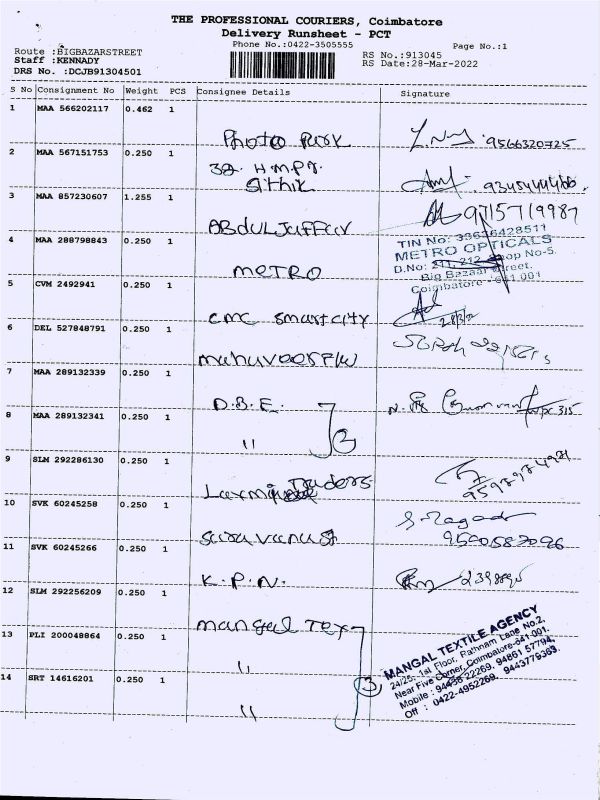 THE PROFESSIONAL COURIERS, Coimbatore
Delivery Runsheet - PCT
Phone No.:0422-3505555
Page No.:1
Route :BIGBAZARSTREET
Staff :KENNADY
DRS No. :DCJB91304501
RS No.:913045
RS Date:28-Mar-2022
S No Consignment No Weight PCS Consignee Details Signature
1 MAA 566202117 0.462 1
Photo Park 9566320725
2 MAA 567151753 0.250 1
32. H.M.P.
Sithik
3 MAA 857230607 1.255 1 9715719987
Abdul Jaffar
TIN No: 33636428511
4 MAA 288798843 0.250 1 METRO OPTICALS
D.No: 211, 212, Shop No-5,
METRO Big Bazaar Street,
Coimbatore - 641 001
5 CVM 2492941 0.250 1
CMC Smart city 28/3/22
6 DEL 527848791 0.250 1
7 MAA 289132339 0.250 1
D.B.E.
8 MAA 289132341 0.250 1
" 2
9 SLM 292286130 0.250 1
Laxmi Traders 9597974971
10 SVK 60245258 0.250 1
9590587096
11 SVK 60245266 0.250 1
K.P.N.
12 SLM 292256209 0.250 1
Mangal Tex
13 PLI 200048864 0.250 1
"
14 SRT 14616201 0.250 1
" 3
MANGAL TEXTILE AGENCY
24/25, 1st Floor, Rathnam Lane No.2,
Near Five Corner, Coimbatore-641 001.
Mobile : 94436 22269, 94861 57794,
Off : 0422-4952269, 9443779363.